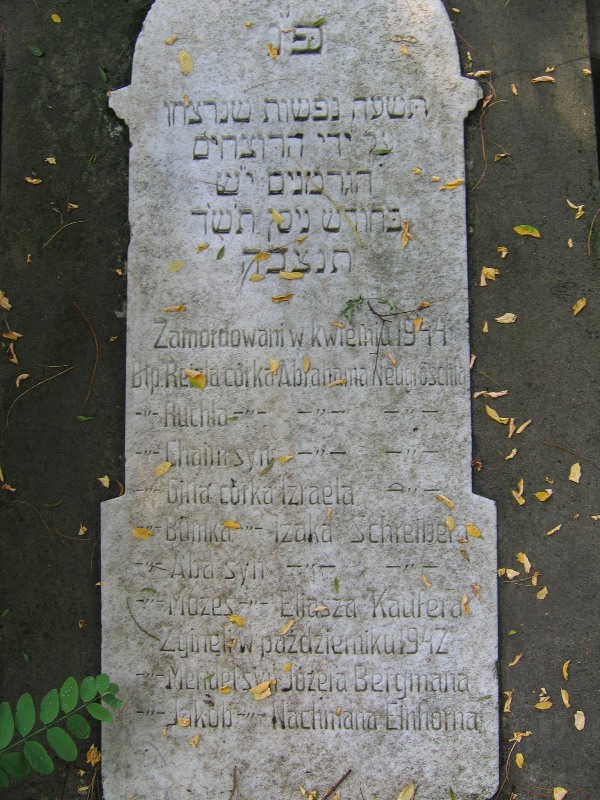 פ״נ
תשעה נפשות שנרצחו
על ידי הרוצחים
הגרמנים י״ש
בחודש ניסן תש״ד
תנצבה
Zamordowani w kwietniu 1944
Błp. Regina córka Abrahama
-"- Ruchla -"- -"- -"-
-"- Chaim syn -"- -"-
-"- Gina córka Izraela -"-
-"- Bumka -"- Izaka Schreibera
-"- Aba syn -"- -"-
-"- Mozes -"- Eliasza Kaufera
Zginęli w październiku 1942
-"- Mendel s. Józefa Bergmana
-"- Jakób -"- Nachmana Einhorna